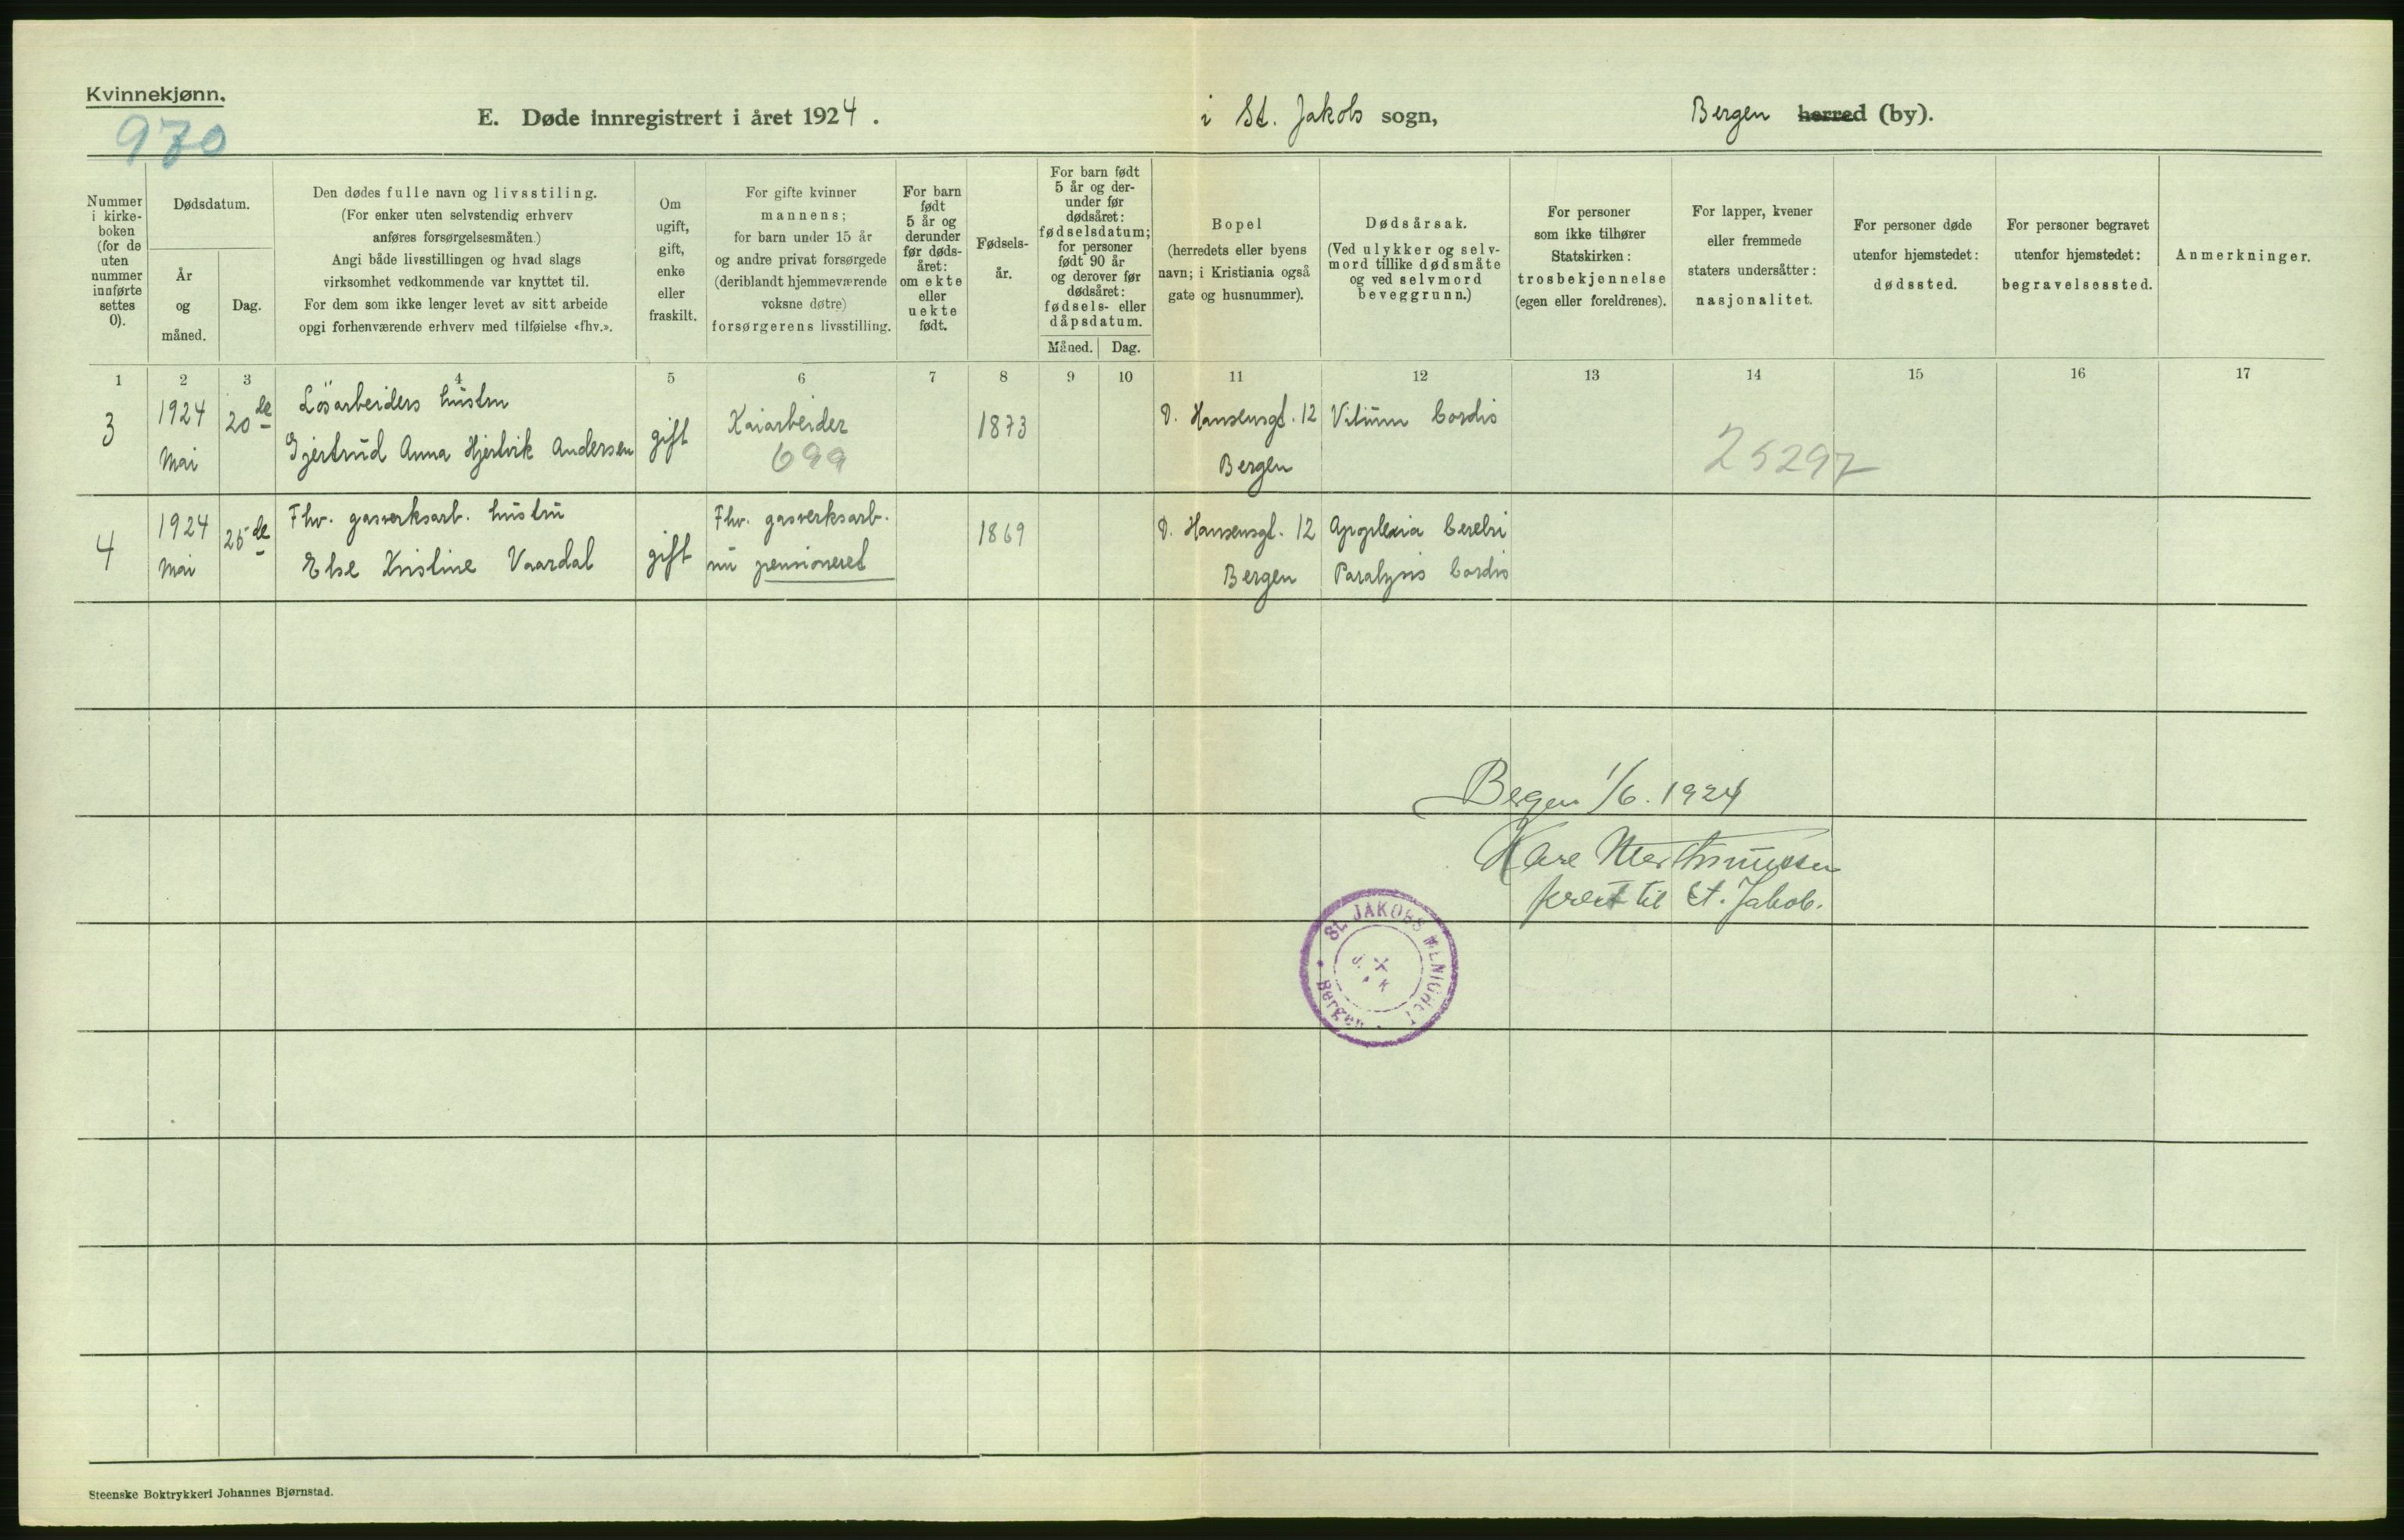 Kvinnekjønn.
970
E. Døde innregistrert i året 1924.
i St. Jakobs sogn,
Bergen herred (by).
Nummer i kirke-
boken
(for de
uten
nummer
innførte
settes
0).
Dødsdatum.
År
og
måned.
Dag.
Den dødes fulle navn og livsstiling.
(For enker uten selvstendig erhverv
anføres forsørgelsesmåten.)
Angi både livsstillingen og hvad slags
virksomhet vedkommende var knyttet til.
For dem som ikke lenger levet av sitt arbeide
opgi forhenværende erhverv med tilføielse «fhv.».
Om
ugift,
gift,
enke
eller
fraskilt.
For gifte kvinner
mannens;
for barn under 15 år
og andre privat forsørgede
(deriblandt hjemmeværende
voksne døtre)
forsørgerens livsstilling.
For barn
født
5 år og
derunder
før døds-
året:
om ekte
eller
uekte
født.
Fødsels-
år.
For barn født
5 år og der-
under før
dødsåret:
fødselsdatum;
for personer
født 90 år
og derover før
dødsåret:
fødsels- eller
dåpsdatum.
Måned. Dag.
Bopel
(herredets eller byens
navn; i Kristiania også
gate og husnummer).
Dødsårsak.
(Ved ulykker og selv-
mord tillike dødsmåte
og ved selvmord
beveggrunn.)
For personer
som ikke tilhører
Statskirken:
trosbekjennelse
(egen eller foreldrenes).
For lapper, kvener
eller fremmede
staters undersåtter:
nasjonalitet.
For personer døde
utenfor hjemstedet:
dødssted.
For personer begravet
utenfor hjemstedet:
begravelsessted.
Anmerkninger.
1 2 3 4 5 6 7 8 9 10 11 12 13 14 15 16 17
3
1924
Mai
20de
Løsarbeiders hustru
Gjertrud Anna Hjertvik Andersen
gift
Kaiarbeider
699
1873
D. Hansensgt. 12
Bergen
Vitium Cordis
25297
4
1924
Mai
25de
Fhv. gasverksarb. hustru
Else Kristine Vaardal
gift
Fhv. gasverksarb.
nu pensioneret
1869
D. Hansensgt. 12
Bergen
Apoplexia Cerebri
Paralysis Cordis
Bergen 1/6. 1924
prest til St. Jakob.
St. JAKOBS MENIGHET
Bergen
Steenske Boktrykkeri Johannes Bjørnstad.